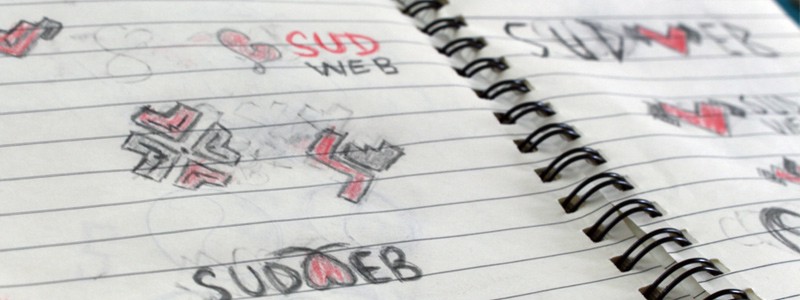 SUD
WEB
SUDWEB
SUDWEB
SUD
WE